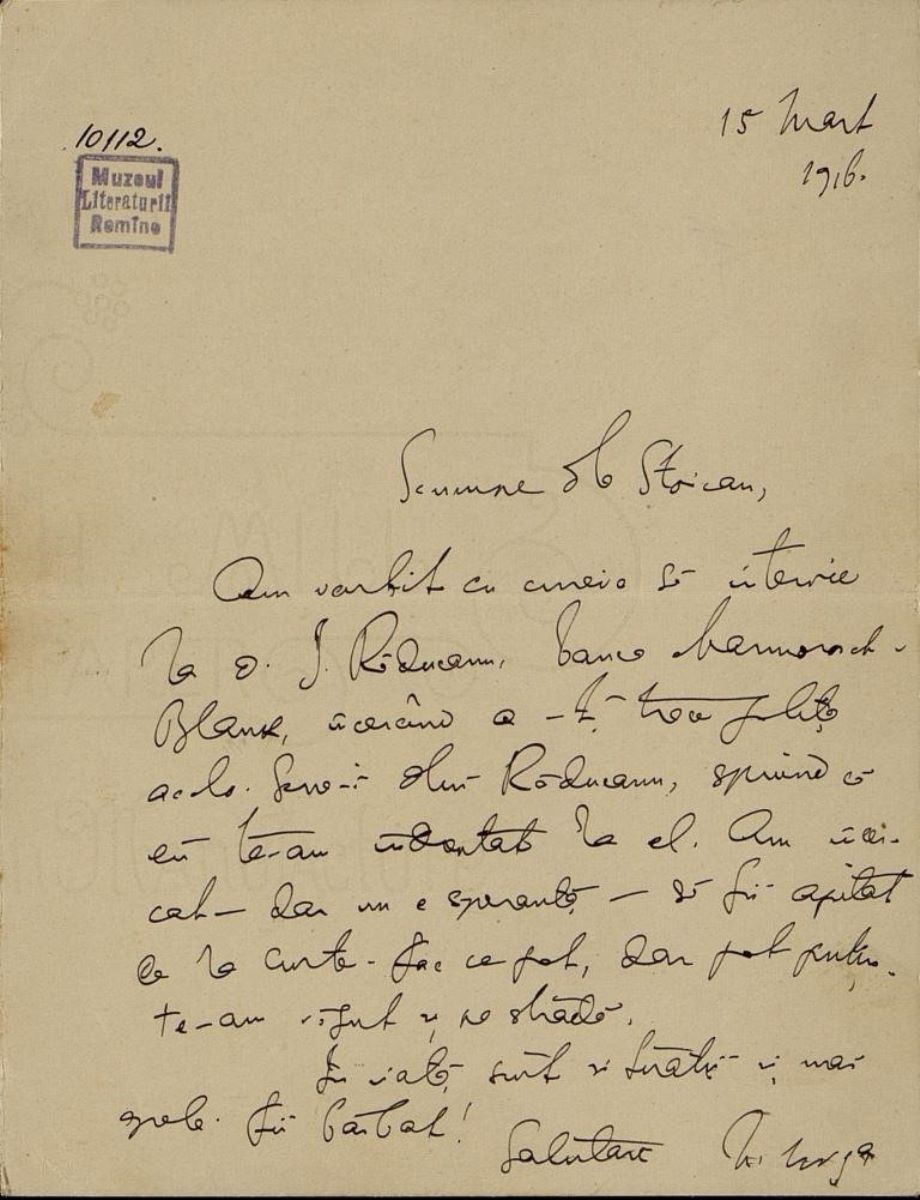 10112.
Muzeul
Literaturii
Romîne
15 Mart
1916.
Scumpe dle Stoican,
Am vorbit cu cineva să intervie
la d. I. Răducanu, banca Marmorosch-
Blank, încercând a-ți
acolo. Scrie-i dlui Răducanu, spuind că
eu te-am îndreptat la el. Am încer-
cat – dar nu e speranță – să fii ajutat
de la Curte. Fac ce pot, dar pot puțin.
te-am văzut și pe stradă.
În viață sînt și situații și mai
grele. Fii bărbat!
Salutare N. Iorga